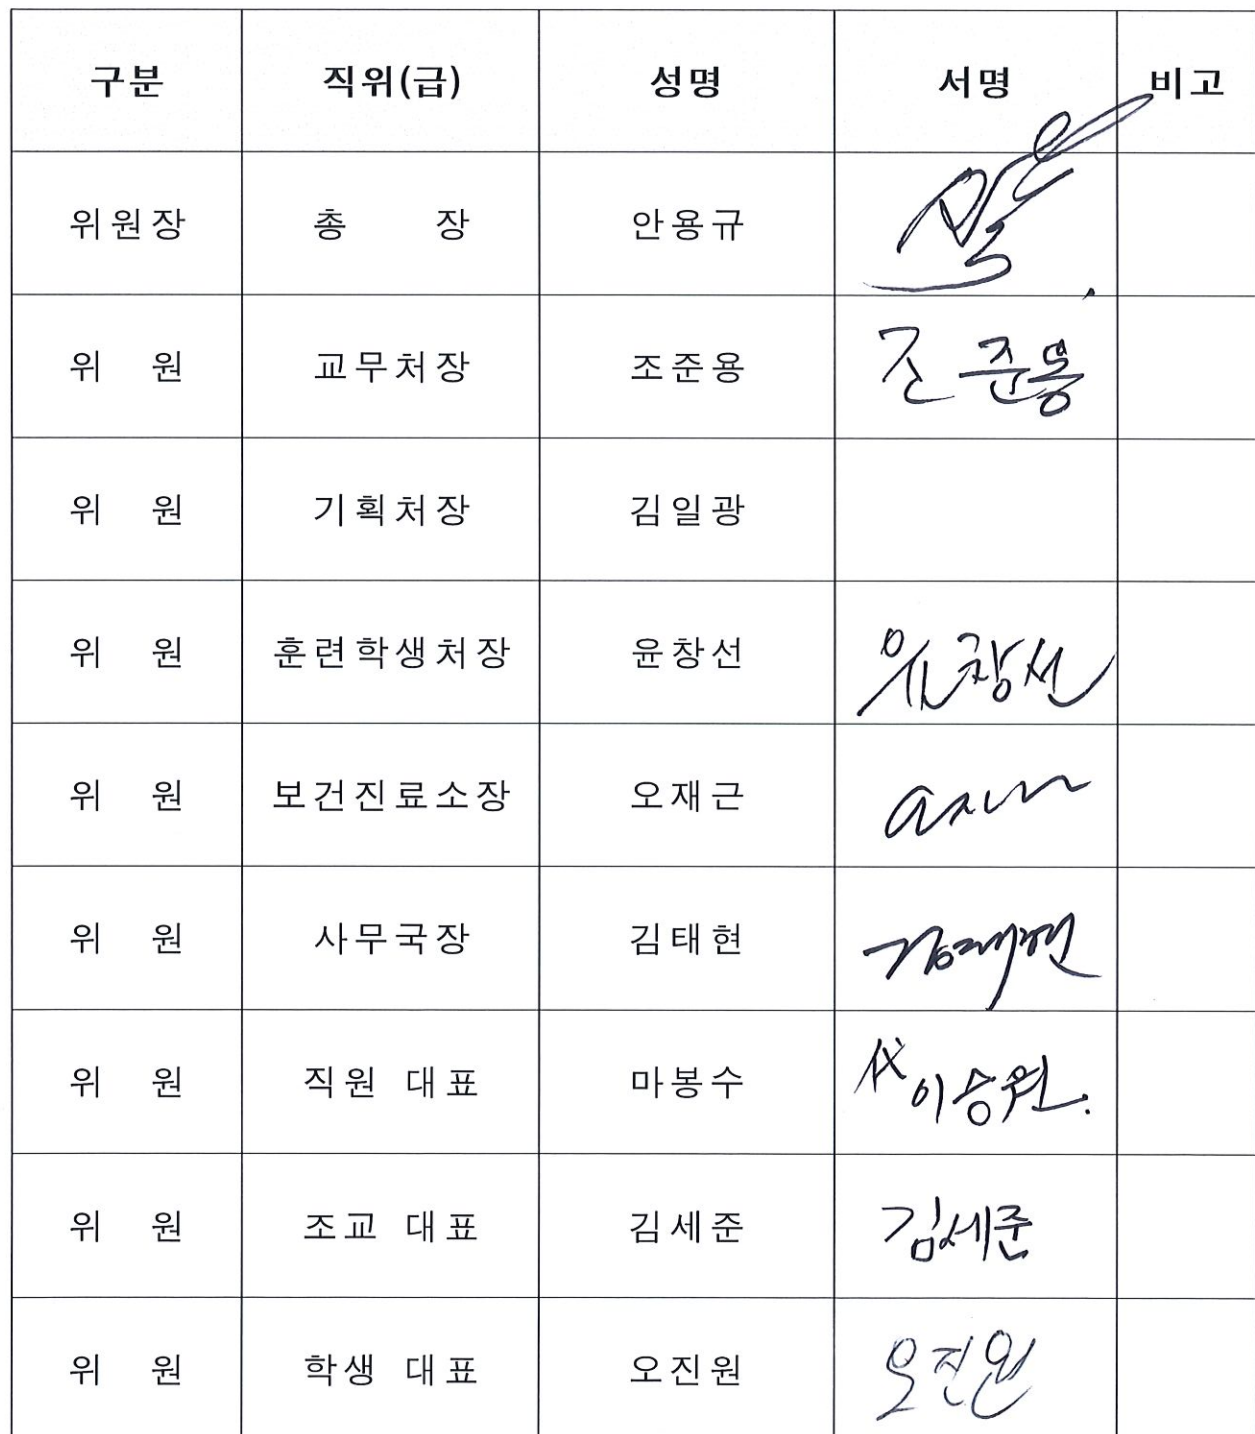 구분 직위(급) 성명 서명 비고
위원장 총 장 안용규
위 원 교무처장 조준용 조준용
위 원 기획처장 김일광
위 원 훈련학생처장 윤창선 윤창선
위 원 보건진료소장 오재근
위 원 사무국장 김태현 김태현
위 원 직원 대표 마봉수 代 이승원.
위 원 조교 대표 김세준 김세준
위 원 학생 대표 오진원 오진원